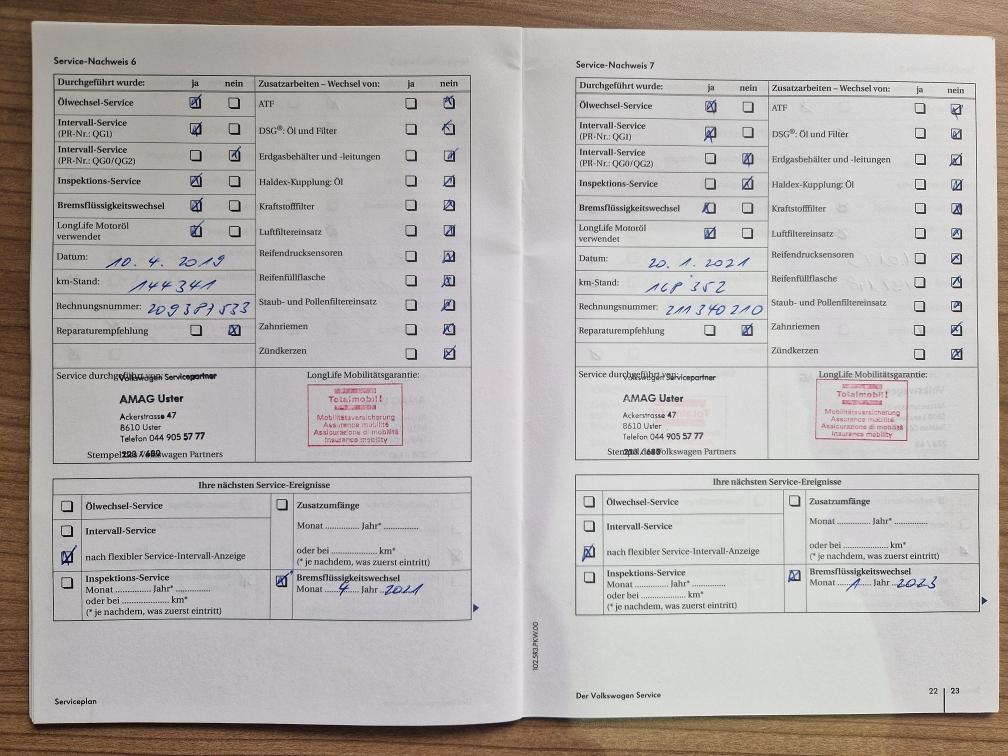 Service-Nachweis 6
Durchgeführt wurde: ja nein Zusatzarbeiten – Wechsel von: ja nein
Ölwechsel-Service
ATF
Intervall-Service
(PR-Nr.: QG1)
DSG®: Öl und Filter
Intervall-Service
(PR-Nr.: QG0/QG2)
Erdgasbehälter und -leitungen
Inspektions-Service
Haldex-Kupplung: Öl
Bremsflüssigkeitswechsel
Kraftstofffilter
LongLife Motoröl
verwendet
Luftfiltereinsatz
Datum: 10. 4. 2019
Reifendrucksensoren
km-Stand: 144341
Reifenfüllflasche
Rechnungsnummer: 209387533
Staub- und Pollenfiltereinsatz
Reparaturempfehlung
Zahnriemen
Zündkerzen
Service durchgeführt von:
Volkswagen Servicepartner
AMAG Uster
Ackerstrasse 47
8610 Uster
Telefon 044 905 57 77
Stempel des Volkswagen Partners
LongLife Mobilitätsgarantie:
Totalmobil!
Mobilitätsversicherung
Assurance mobilité
Assicurazione di mobilità
Insurance mobility
Ihre nächsten Service-Ereignisse
Ölwechsel-Service
Intervall-Service
nach flexibler Service-Intervall-Anzeige
Zusatzumfänge
Monat ............. Jahr* .............
oder bei ...................... km*
(* je nachdem, was zuerst eintritt)
Inspektions-Service
Monat ............. Jahr* .............
oder bei ...................... km*
(* je nachdem, was zuerst eintritt)
Bremsflüssigkeitswechsel
Monat 4 Jahr 2021
Serviceplan
102.5R3.PKW.00
Service-Nachweis 7
Durchgeführt wurde: ja nein Zusatzarbeiten – Wechsel von: ja nein
Ölwechsel-Service
ATF
Intervall-Service
(PR-Nr.: QG1)
DSG®: Öl und Filter
Intervall-Service
(PR-Nr.: QG0/QG2)
Erdgasbehälter und -leitungen
Inspektions-Service
Haldex-Kupplung: Öl
Bremsflüssigkeitswechsel
Kraftstofffilter
LongLife Motoröl
verwendet
Luftfiltereinsatz
Datum: 20. 1. 2021
Reifendrucksensoren
km-Stand: 168 352
Reifenfüllflasche
Rechnungsnummer: 211340210
Staub- und Pollenfiltereinsatz
Reparaturempfehlung
Zahnriemen
Zündkerzen
Service durchgeführt von:
Volkswagen Servicepartner
AMAG Uster
Ackerstrasse 47
8610 Uster
Telefon 044 905 57 77
Stempel des Volkswagen Partners
LongLife Mobilitätsgarantie:
Totalmobil!
Mobilitätsversicherung
Assurance mobilité
Assicurazione di mobilità
Insurance mobility
Ihre nächsten Service-Ereignisse
Ölwechsel-Service
Intervall-Service
nach flexibler Service-Intervall-Anzeige
Zusatzumfänge
Monat ............. Jahr* .............
oder bei ...................... km*
(* je nachdem, was zuerst eintritt)
Inspektions-Service
Monat ............. Jahr* .............
oder bei ...................... km*
(* je nachdem, was zuerst eintritt)
Bremsflüssigkeitswechsel
Monat 1 Jahr 2023
Der Volkswagen Service
22 | 23